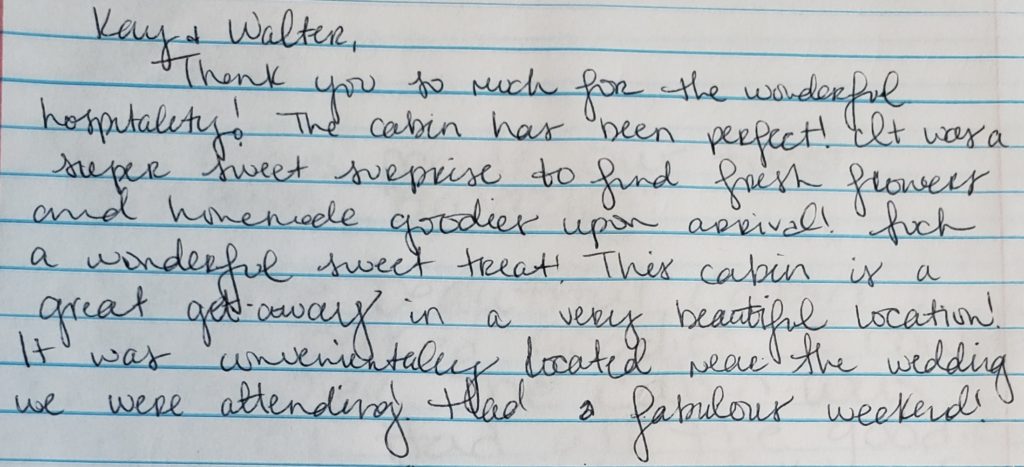 Kay & Walter,
Thank you so much for the wonderful
hospitality! The cabin has been perfect! It was a
super sweet surprise to find fresh flowers
and homemade goodies upon arrival! Such
a wonderful sweet treat! This cabin is a
great get-away in a very beautiful location!
It was convenientaley located near the wedding
we were attending. Had a fabulous weekend!